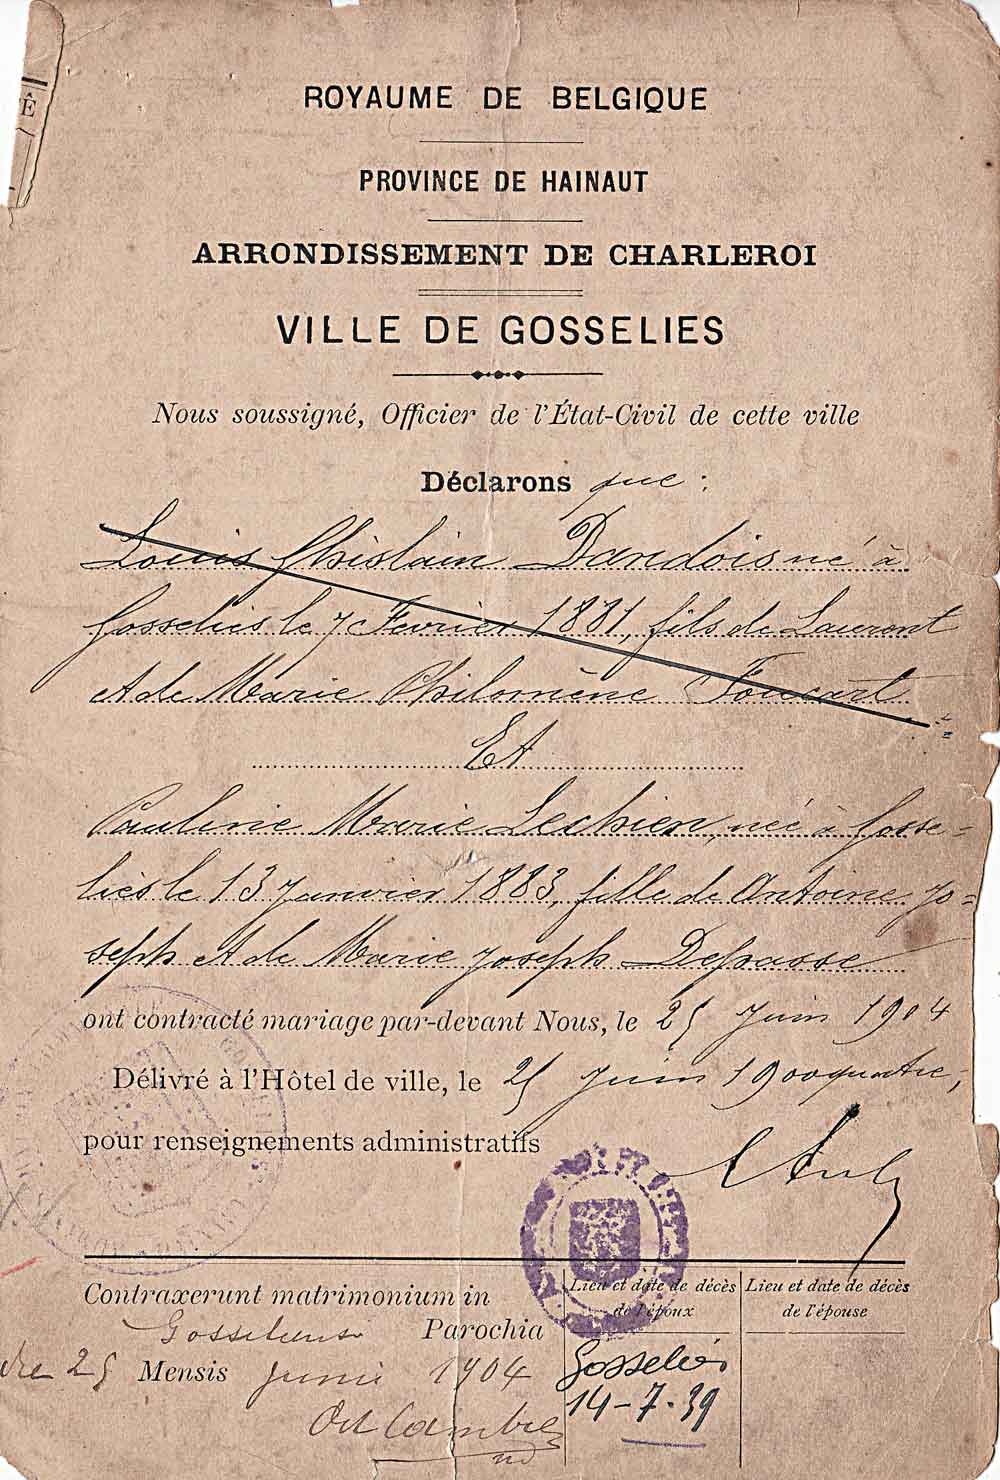 Ê
ROYAUME DE BELGIQUE
PROVINCE DE HAINAUT
ARRONDISSEMENT DE CHARLEROI
VILLE DE GOSSELIES
Nous soussigné, Officier de l'État-Civil de cette ville
Déclarons que :
Louis Ghislain Dandois né à
Gosselies le 7 Fevrier 1881, fils de Laurent
et de Marie Philomène Foucart
Et
Pauline Marie Lechien, née à Gosse=
lies le 13 Janvier 1883, fille de Antoine Jo=
seph et de Marie Joseph Defrasse
ont contracté mariage par-devant Nous, le 25 Juin 1904
Délivré à l'Hôtel de ville, le 25 Juin 1900quatre,
pour renseignements administratifs
Contraxerunt matrimonium in
Parochia
die 25 Mensis Junii 1904
Lieu et date de décès
de l'époux
Gosselies
14-7-39
Lieu et date de décès
de l'épouse